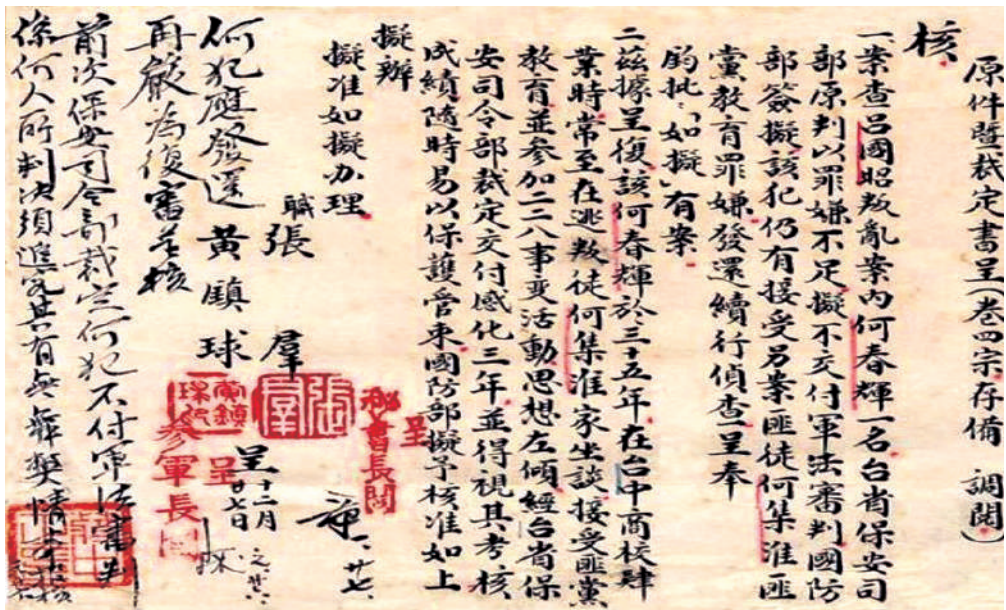 原件暨裁定書呈(卷四宗存備 調閱)
核。
一案查呂國昭叛亂案內何春輝一名台省保安司
部原判以罪嫌不足擬不交付軍法審判國防
部簽擬該犯仍有接受另案匪徒何集淮匪
黨教育罪嫌發還續行偵查呈奉
鈞批「如擬」有案。
二茲據呈復該何春輝於三十五年在台中商校肄
業時常至在逃叛徒何集淮家坐談接受匪黨
教育並參加二二八事變活動思想左傾經台省保
安司令部裁定交付感化三年並得視其考核
成績隨時易以保護管束國防部擬予核准如上
擬辦
擬准如擬办理
職 張 羣
黃鎮球
呈 十二月廿七日
秘書長閱
呈
張羣
黃鎮球印
參軍長閱
呈
何犯應發還
再嚴為復審若核
前次保安司令部裁定何犯不付軍法審判
係何人所判決須追究其有無舞弊情